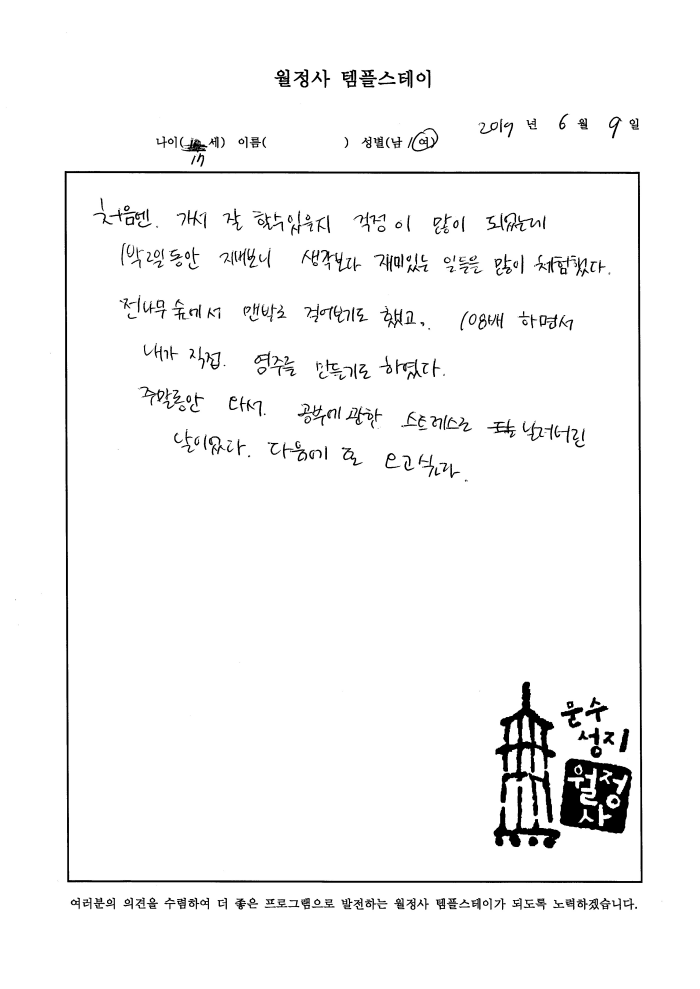 월정사 템플스테이
2019 년 6 월 9 일
나이( 세) 이름( ) 성별(남 / 여)
17
처음엔. 가서 잘 할수있을지 걱정이 많이 되었는데
1박2일동안 지내보니 생각보다 재미있는 일들을 많이 체험했다.
전나무 숲에서 맨발로 걸어보기도 했고,. 108배 하면서
내가 직접. 염주를 만들기도 하였다.
주말동안 와서. 공부에 관한 스트레스로 날려버린
날이었다. 다음에 또 오고싶다.
문수
성지
월정
사
여러분의 의견을 수렴하여 더 좋은 프로그램으로 발전하는 월정사 템플스테이가 되도록 노력하겠습니다.